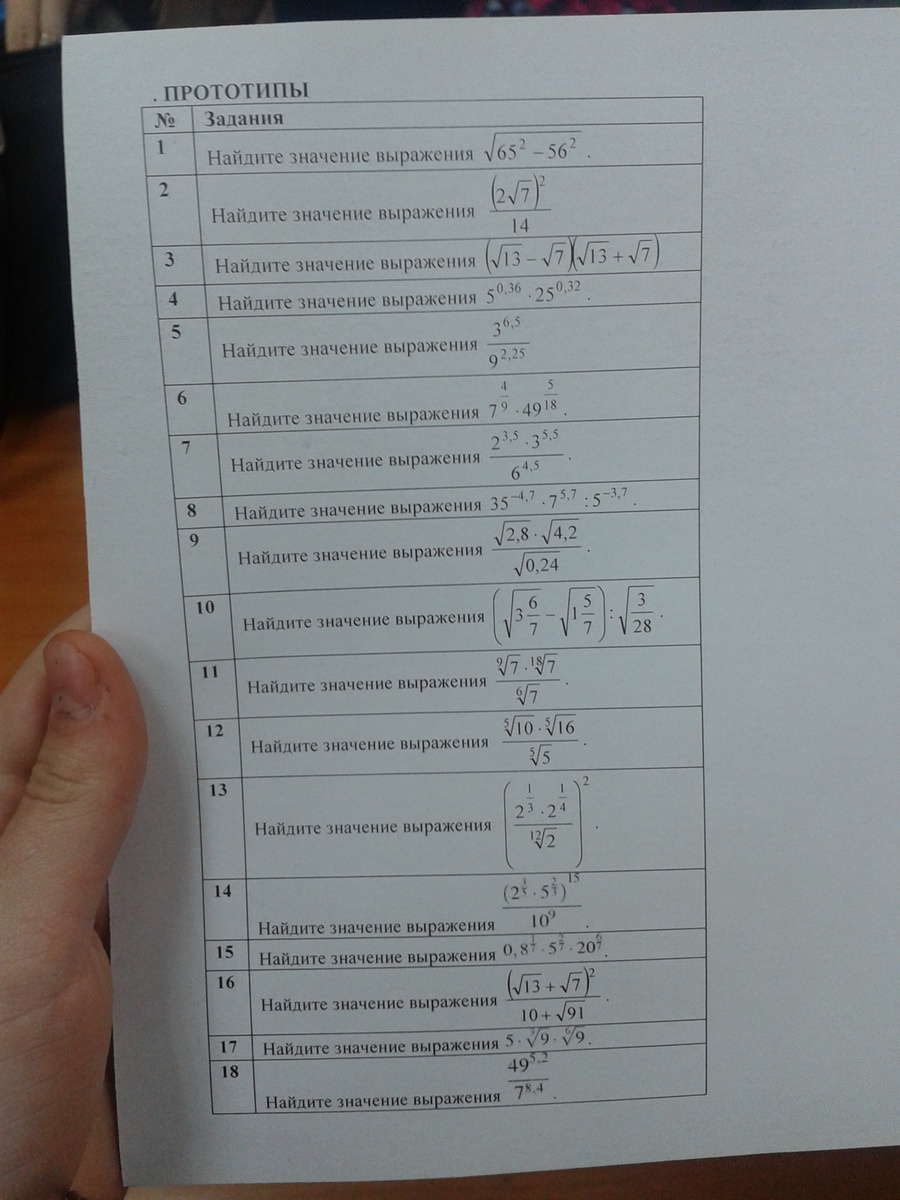 . ПРОТОТИПЫ
№ Задания
1 Найдите значение выражения √(65² − 56²) .
2 Найдите значение выражения (2√7)² / 14
3 Найдите значение выражения (√13 − √7)(√13 + √7)
4 Найдите значение выражения 5^0,36 · 25^0,32 .
5 Найдите значение выражения 3^6,5 / 9^2,25
6 Найдите значение выражения 7^(4/9) · 49^(5/18) .
7 Найдите значение выражения (2^3,5 · 3^5,5) / 6^4,5 .
8 Найдите значение выражения 35^−4,7 · 7^5,7 : 5^−3,7 .
9 Найдите значение выражения (√2,8 · √4,2) / √0,24 .
10 Найдите значение выражения (√(3 6/7) − √(1 5/7)) : √(3/28) .
11 Найдите значение выражения (⁹√7 · ¹⁸√7) / ⁶√7 .
12 Найдите значение выражения (⁵√10 · ⁵√16) / ⁵√5 .
13 Найдите значение выражения ((2^(1/3) · 2^(1/4)) / ¹²√2)² .
14 Найдите значение выражения (2^(3/5) · 5^(2/3))^15 / 10^9 .
15 Найдите значение выражения 0,8^(1/7) · 5^(2/7) · 20^(6/7) .
16 Найдите значение выражения (√13 + √7)² / (10 + √91) .
17 Найдите значение выражения 5 · ³√9 · ⁶√9 .
18 Найдите значение выражения 49^5,2 / 7^8,4 .